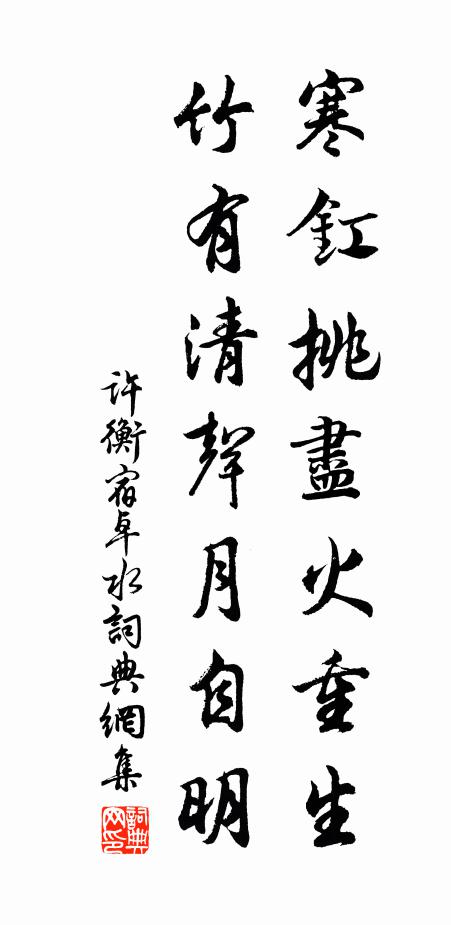 寒釭挑盡火重生
竹有清聲月自明
許衡宿卓水詞典網集
詞典網印